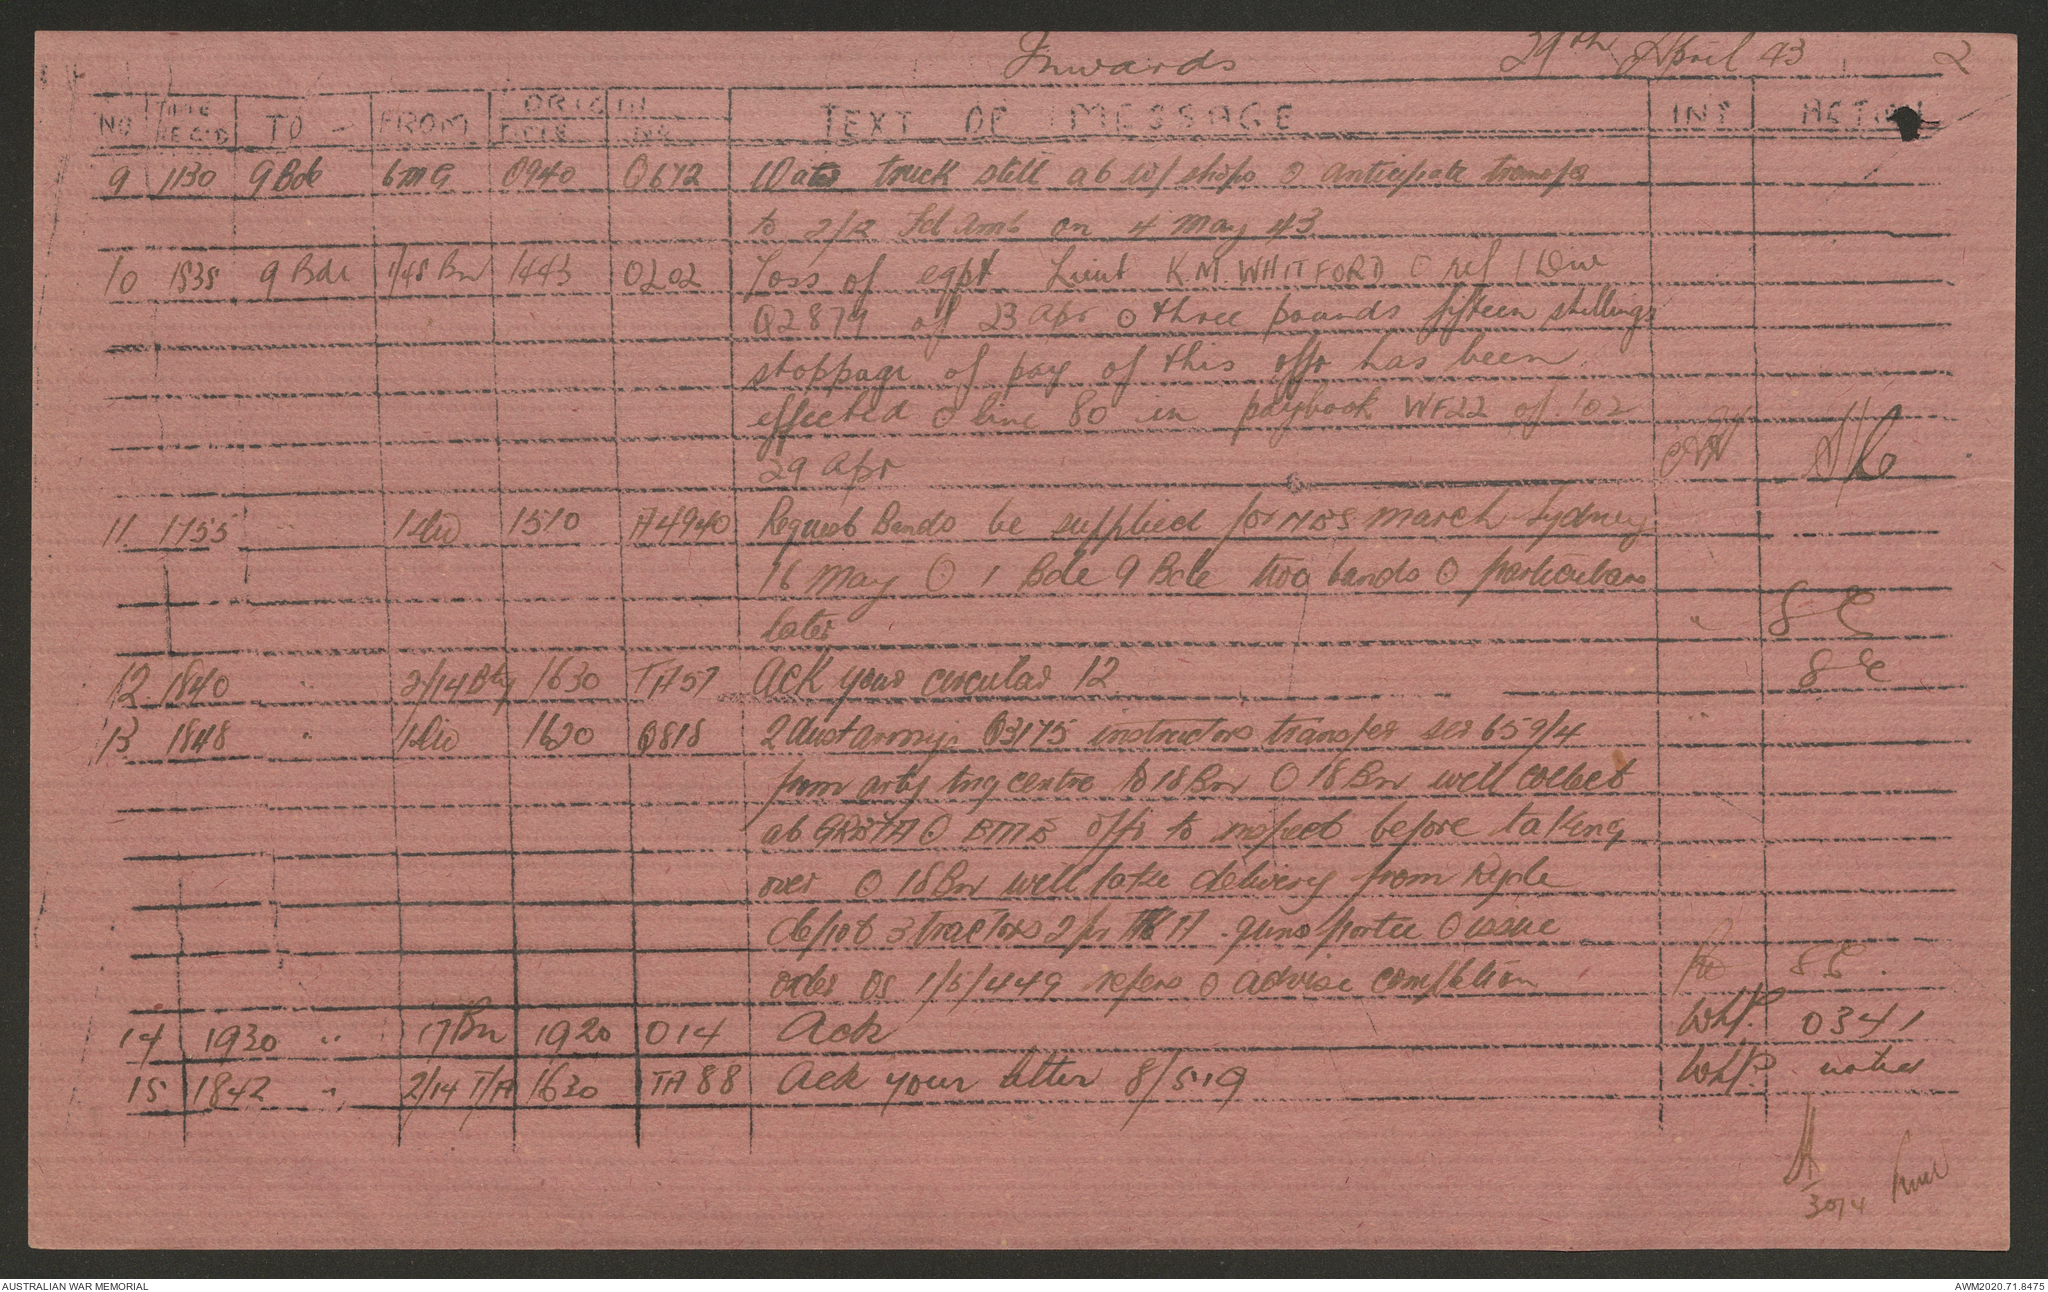 Inwards 29th April 43 2
NO TIME REC'D TO - FROM ORIGIN TEXT OF MESSAGE INT ACTION
NO
9 1130 9 Bde 6 MG 0940 Q672 Water truck still at w/shops O anticipate transfer
to 2/12 Fd Amb on 4 May 43
10 1535 9 Bde 1/45 Bn 1443 O202 Loss of eqpt Lieut K.M. WHITFORD O ref 1 Div
Q2879 of 23 Apr O three pounds fifteen shillings
stoppage of pay of this offr has been
effected O line 80 in paybook WF22 of 102
29 Apr
11 1755 1 Div 1510 A4940 Request Bands be supplied for march Sydney
16 May O 1 Bde 9 Bde two bands O particulars
later " 8
12 1840 " 2/14 Bty 1630 TA57 Ack your circular 12 8
13 1848 " 1 Div 1620 Q818 2 Aust Army Q3175 instructors transfer ser 659/4 "
from arty trng centre to 18 Bn O 18 Bn will collect
at O offr to inspect before taking
over O 18 Bn will take delivery from Ryde
depot 3 tractors 2 pr guns portee O issue
order OS 1/5/449 refers O advise completion
14 1930 " 17 Bn 1920 O14 Ack WHP. 0341
15 1842 " 2/14 T/A 1630 TA88 Ack your letter 8/519 WHP. noted
30/4
AUSTRALIAN WAR MEMORIAL AWM2020.71.8475